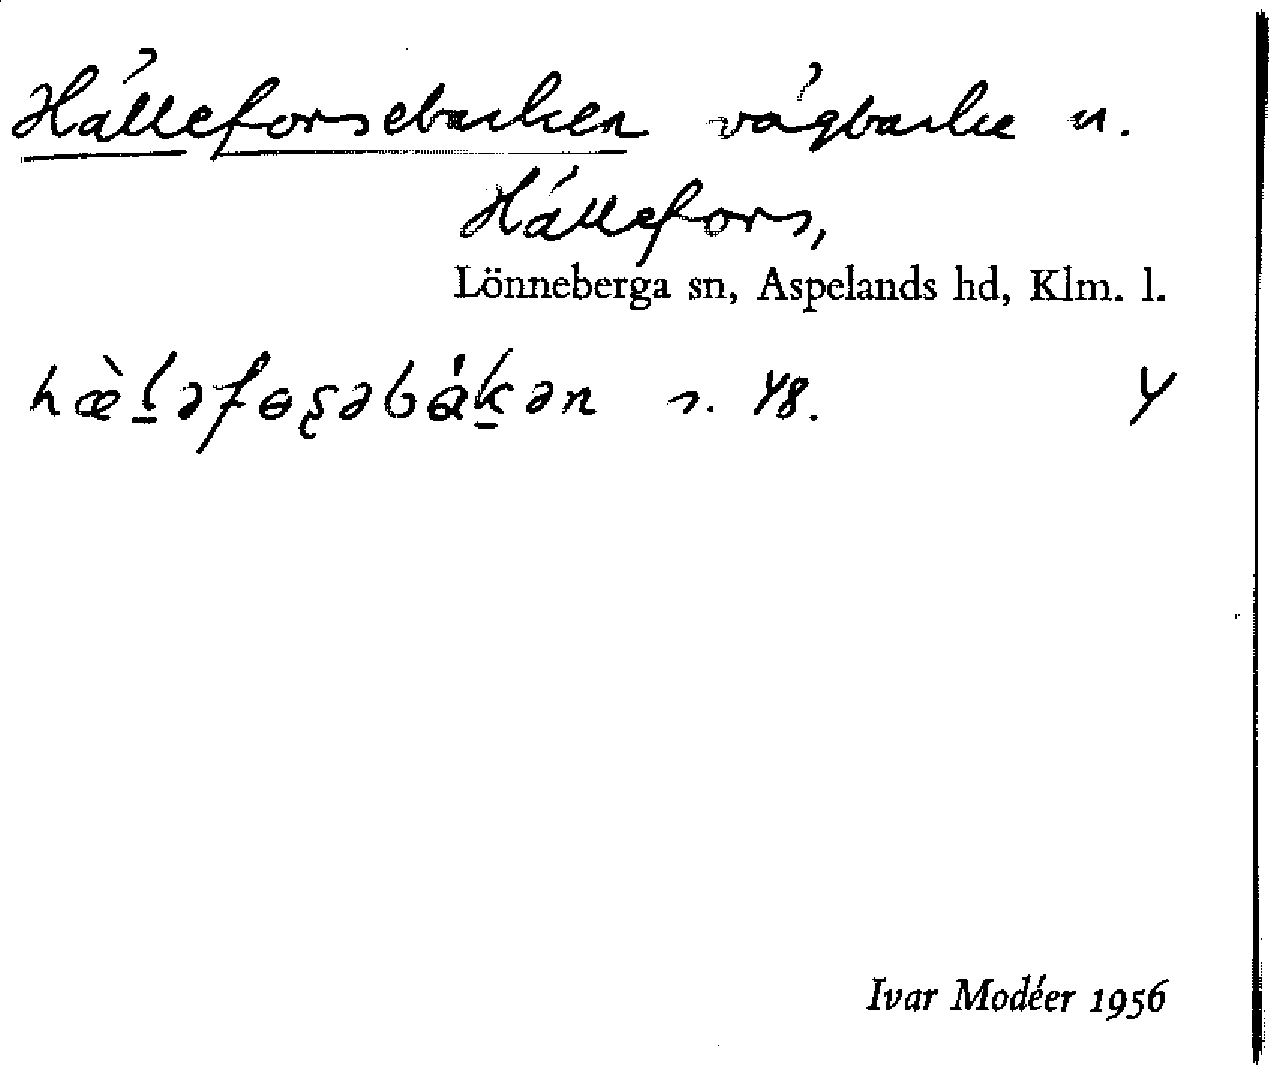 Hälleforsebacken vägbacke n.
Hällefors,
Lönneberga sn, Aspelands hd, Klm. l.
s. 48.
Ivar Modéer 1956